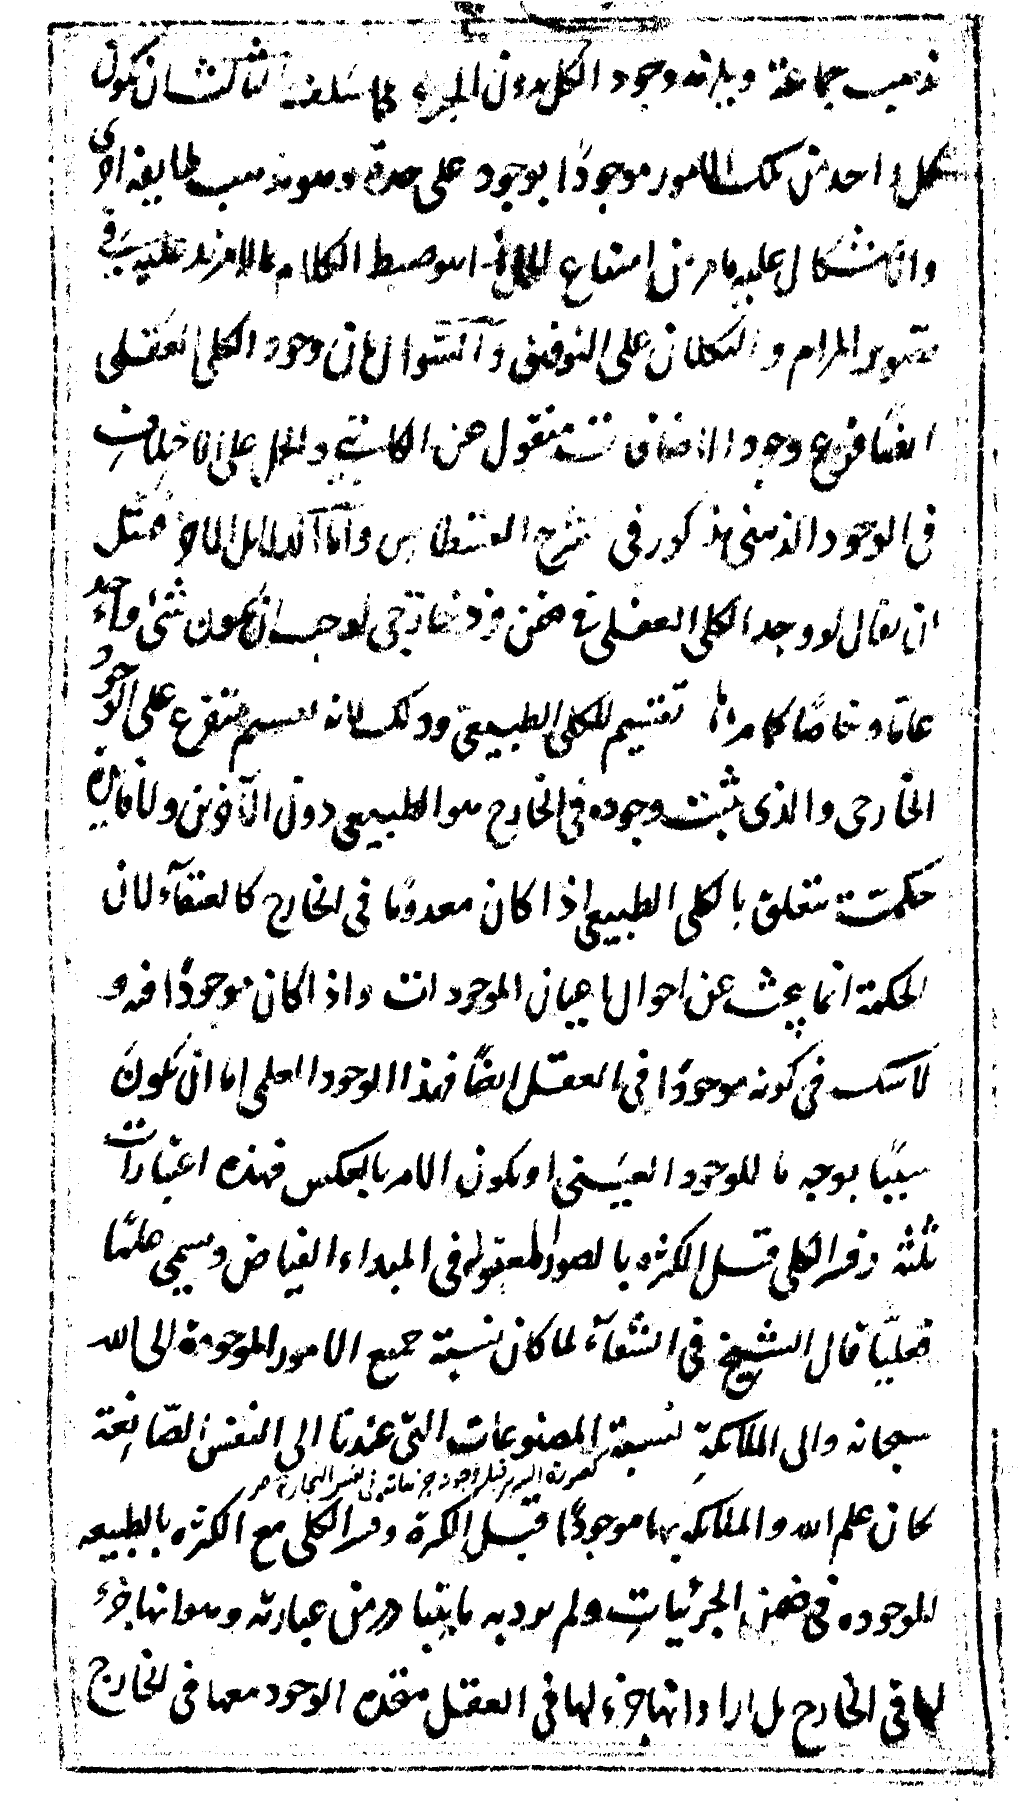 ذهب جماعة ويلزمه وجود الكل بدون الجزء كما سلف الثالث ان يكون
كل واحد من تلك الامور موجودًا بوجود على حدة وهو مذهب طايفة اخرى
والاشكال عليه ما مر من امتناع الحمل هو ضبط الكلام بما لا مزيد عليه في
تصوير المرام والتكلان على التوفيق وآلسّوال بان وجود الكلى العقلى
ايضا فرع وجود الاضافات منقول عن الكاتبي والحل على الاختلاف
فى الوجود الذهنى مذكور فى شرح القسطاس وأما آلدلايل الاخر فمثل
ان يقال لو وجد الكلى العقلى فى ضمن فرد خارجى لوجب ان يكون شئ واحد
عامّا وخاصًا كما مر تقسيم للكلى الطبيعى وذلك لانه تقسيم متفرع على الوجود
الخارجى والذى يثبت وجوده فى الخارج هو الطبيعى دون الآخرين ولا فايدة
حكمية تتعلق بالكلى الطبيعى اذا كان معدومًا فى الخارج كالعنقآء لان
الحكمة انما يبحث عن احوال اعيان الموجودات واذا كان موجودًا فيه و
لا شك فى كونه موجودًا فى العقل ايضًا فهذا الوجود العلمى اما ان يكون
سببًا بوجه ما للوجود العينى او يكون الامر بالعكس فهذه اعتبارات
ثلثة وفسر الكلى قبل الكثرة بالصور المعقولة فى المبداء الفياض وسمى علمًا
فعليًّا قال الشيخ فى الشفآء لما كان نسبة جميع الامور الموجودة الى الله
سبحانه والى الملائكة نسبة المصنوعات التى عندنا الى النفس الصّانعة
كان علم الله والملائكة بها موجودًا قبل الكثرة وفسر الكلى مع الكثرة بالطبيعة
الموجوده فى ضمن الجزئيات ولم يرد به ما يتبادر من عبارته وهو انها جزء
لها فى الخارج بل اراد انها جزء لها فى العقل متحدة الوجود معها فى الخارج